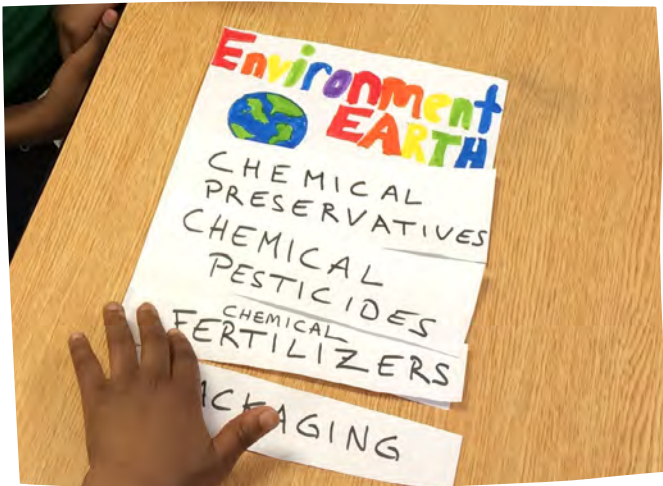 Environment
EARTH
CHEMICAL
PRESERVATIVES
CHEMICAL
PESTICIDES
CHEMICAL
FERTILIZERS
ACKAGING